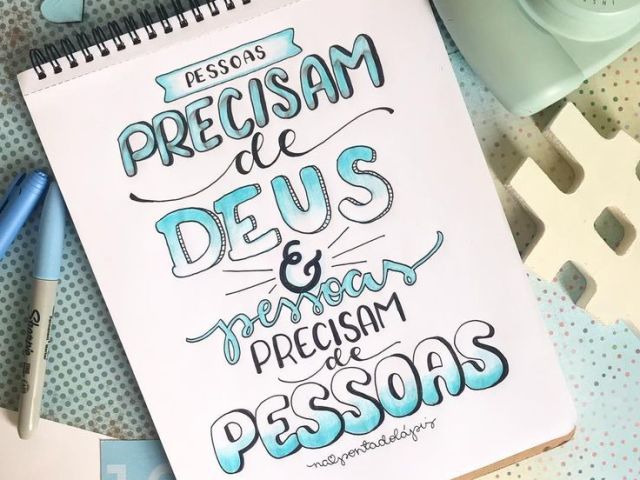 PESSOAS
PRECISAM
de
DEUS
&
pessoas
PRECISAM
de
PESSOAS
na@pontadolápis
Sharpie